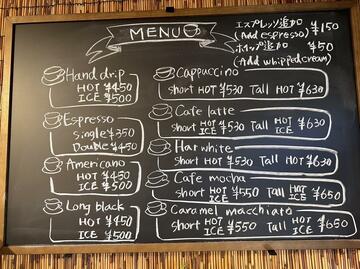 MENU
エスプレッソ追加 ¥150
(Add espresso)
ホイップ追加 ¥50
(Add whipped cream)
Hand drip
HOT ¥450
ICE ¥500
Espresso
Single ¥350
Double ¥450
Americano
HOT ¥450
ICE ¥500
Long black
HOT ¥450
ICE ¥500
Cappuccino
short HOT ¥530 Tall HOT ¥630
Cafe latte
short HOT ICE ¥530 Tall HOT ICE ¥630
Flat white
short HOT ¥530 Tall HOT ¥630
Cafe mocha
short HOT ICE ¥550 Tall HOT ICE ¥650
Caramel macchiato
short HOT ICE ¥550 Tall HOT ICE ¥650